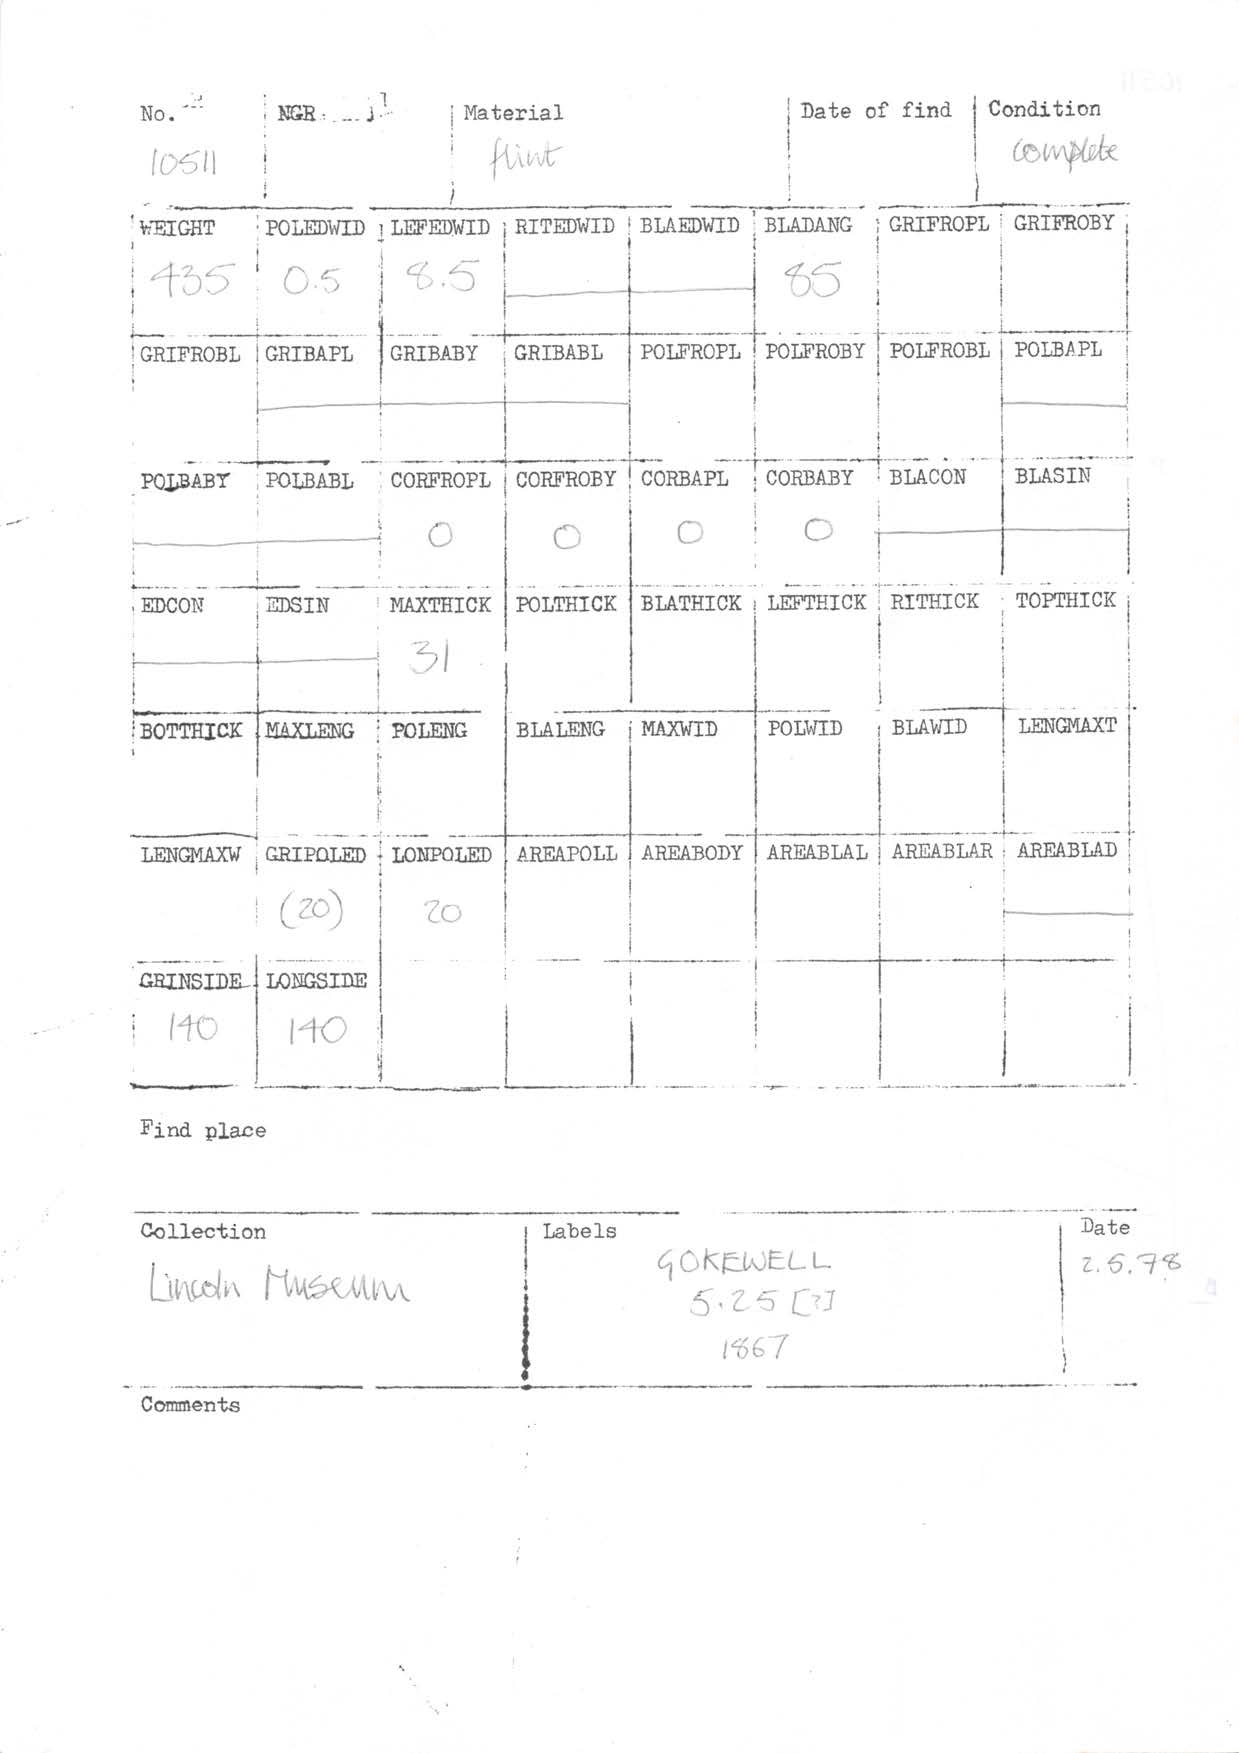 No. NGR Material Date of find Condition
10511 flint complete
WEIGHT POLEDWID LEFEDWID RITEDWID BLAEDWID BLADANG GRIFROPL GRIFROBY
435 0.5 8.5 85
GRIFROBL GRIBAPL GRIBABY GRIBABL POLFROPL POLFROBY POLFROBL POLBAPL
POLBABY POLBABL CORFROPL CORFROBY CORBAPL CORBABY BLACON BLASIN
0 0 0 0
EDCON EDSIN MAXTHICK POLTHICK BLATHICK LEFTHICK RITHICK TOPTHICK
31
BOTTHICK MAXLENG POLENG BLALENG MAXWID POLWID BLAWID LENGMAXT
LENGMAXW GRIPOLED LONPOLED AREAPOLL AREABODY AREABLAL AREABLAR AREABLAD
(20) 20
GRINSIDE LONGSIDE
140 140
Find place
Collection Labels Date
Lincoln Museum GOKEWELL 2.5.78
5.25 [?]
1867
Comments